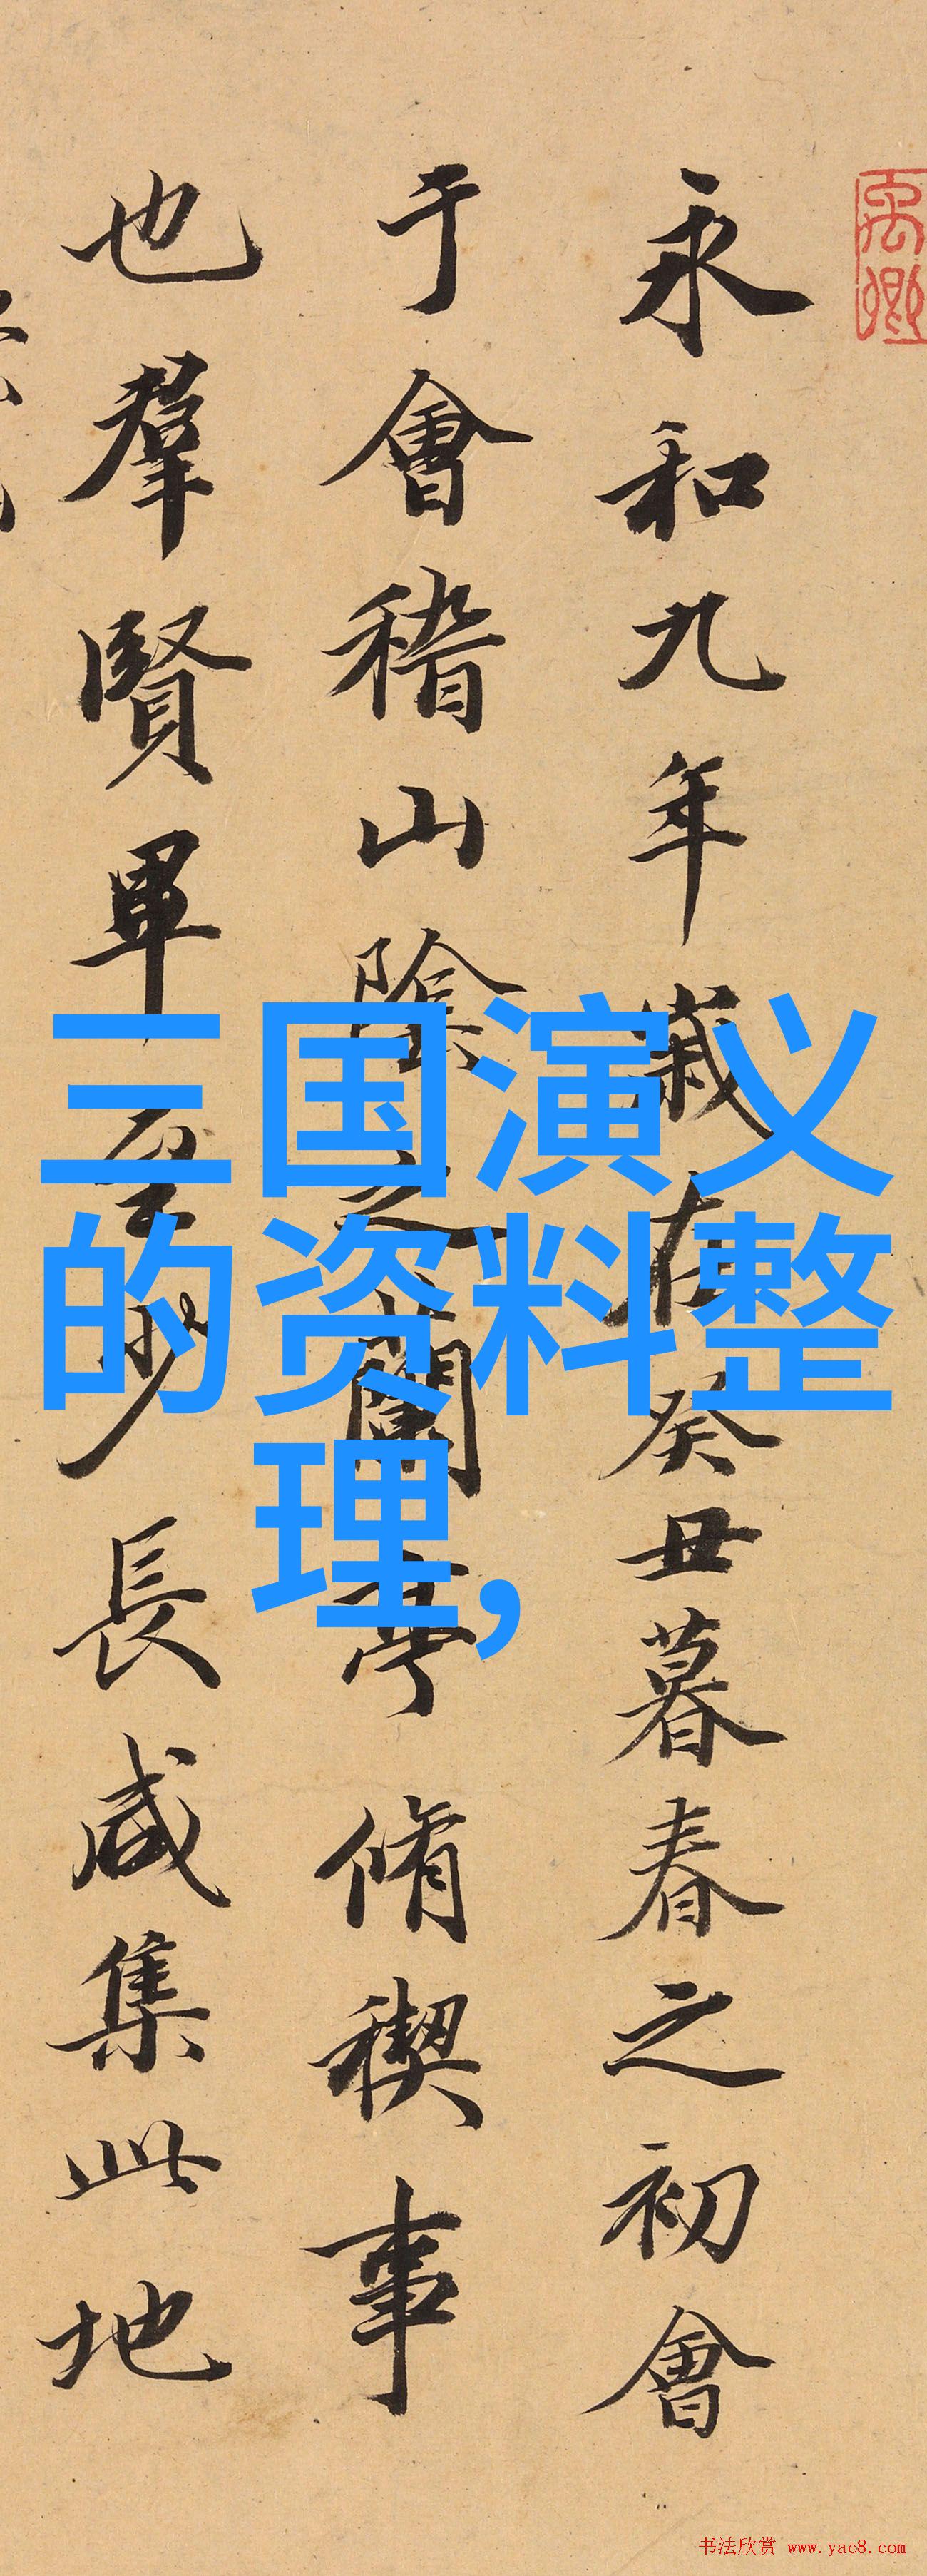 永和九年歲在癸丑暮春之初會
于會稽山陰之蘭亭脩稧事
也羣賢畢至少長咸集此地
三国演义
的资料整
理,
书法欣赏 www.yac8.com